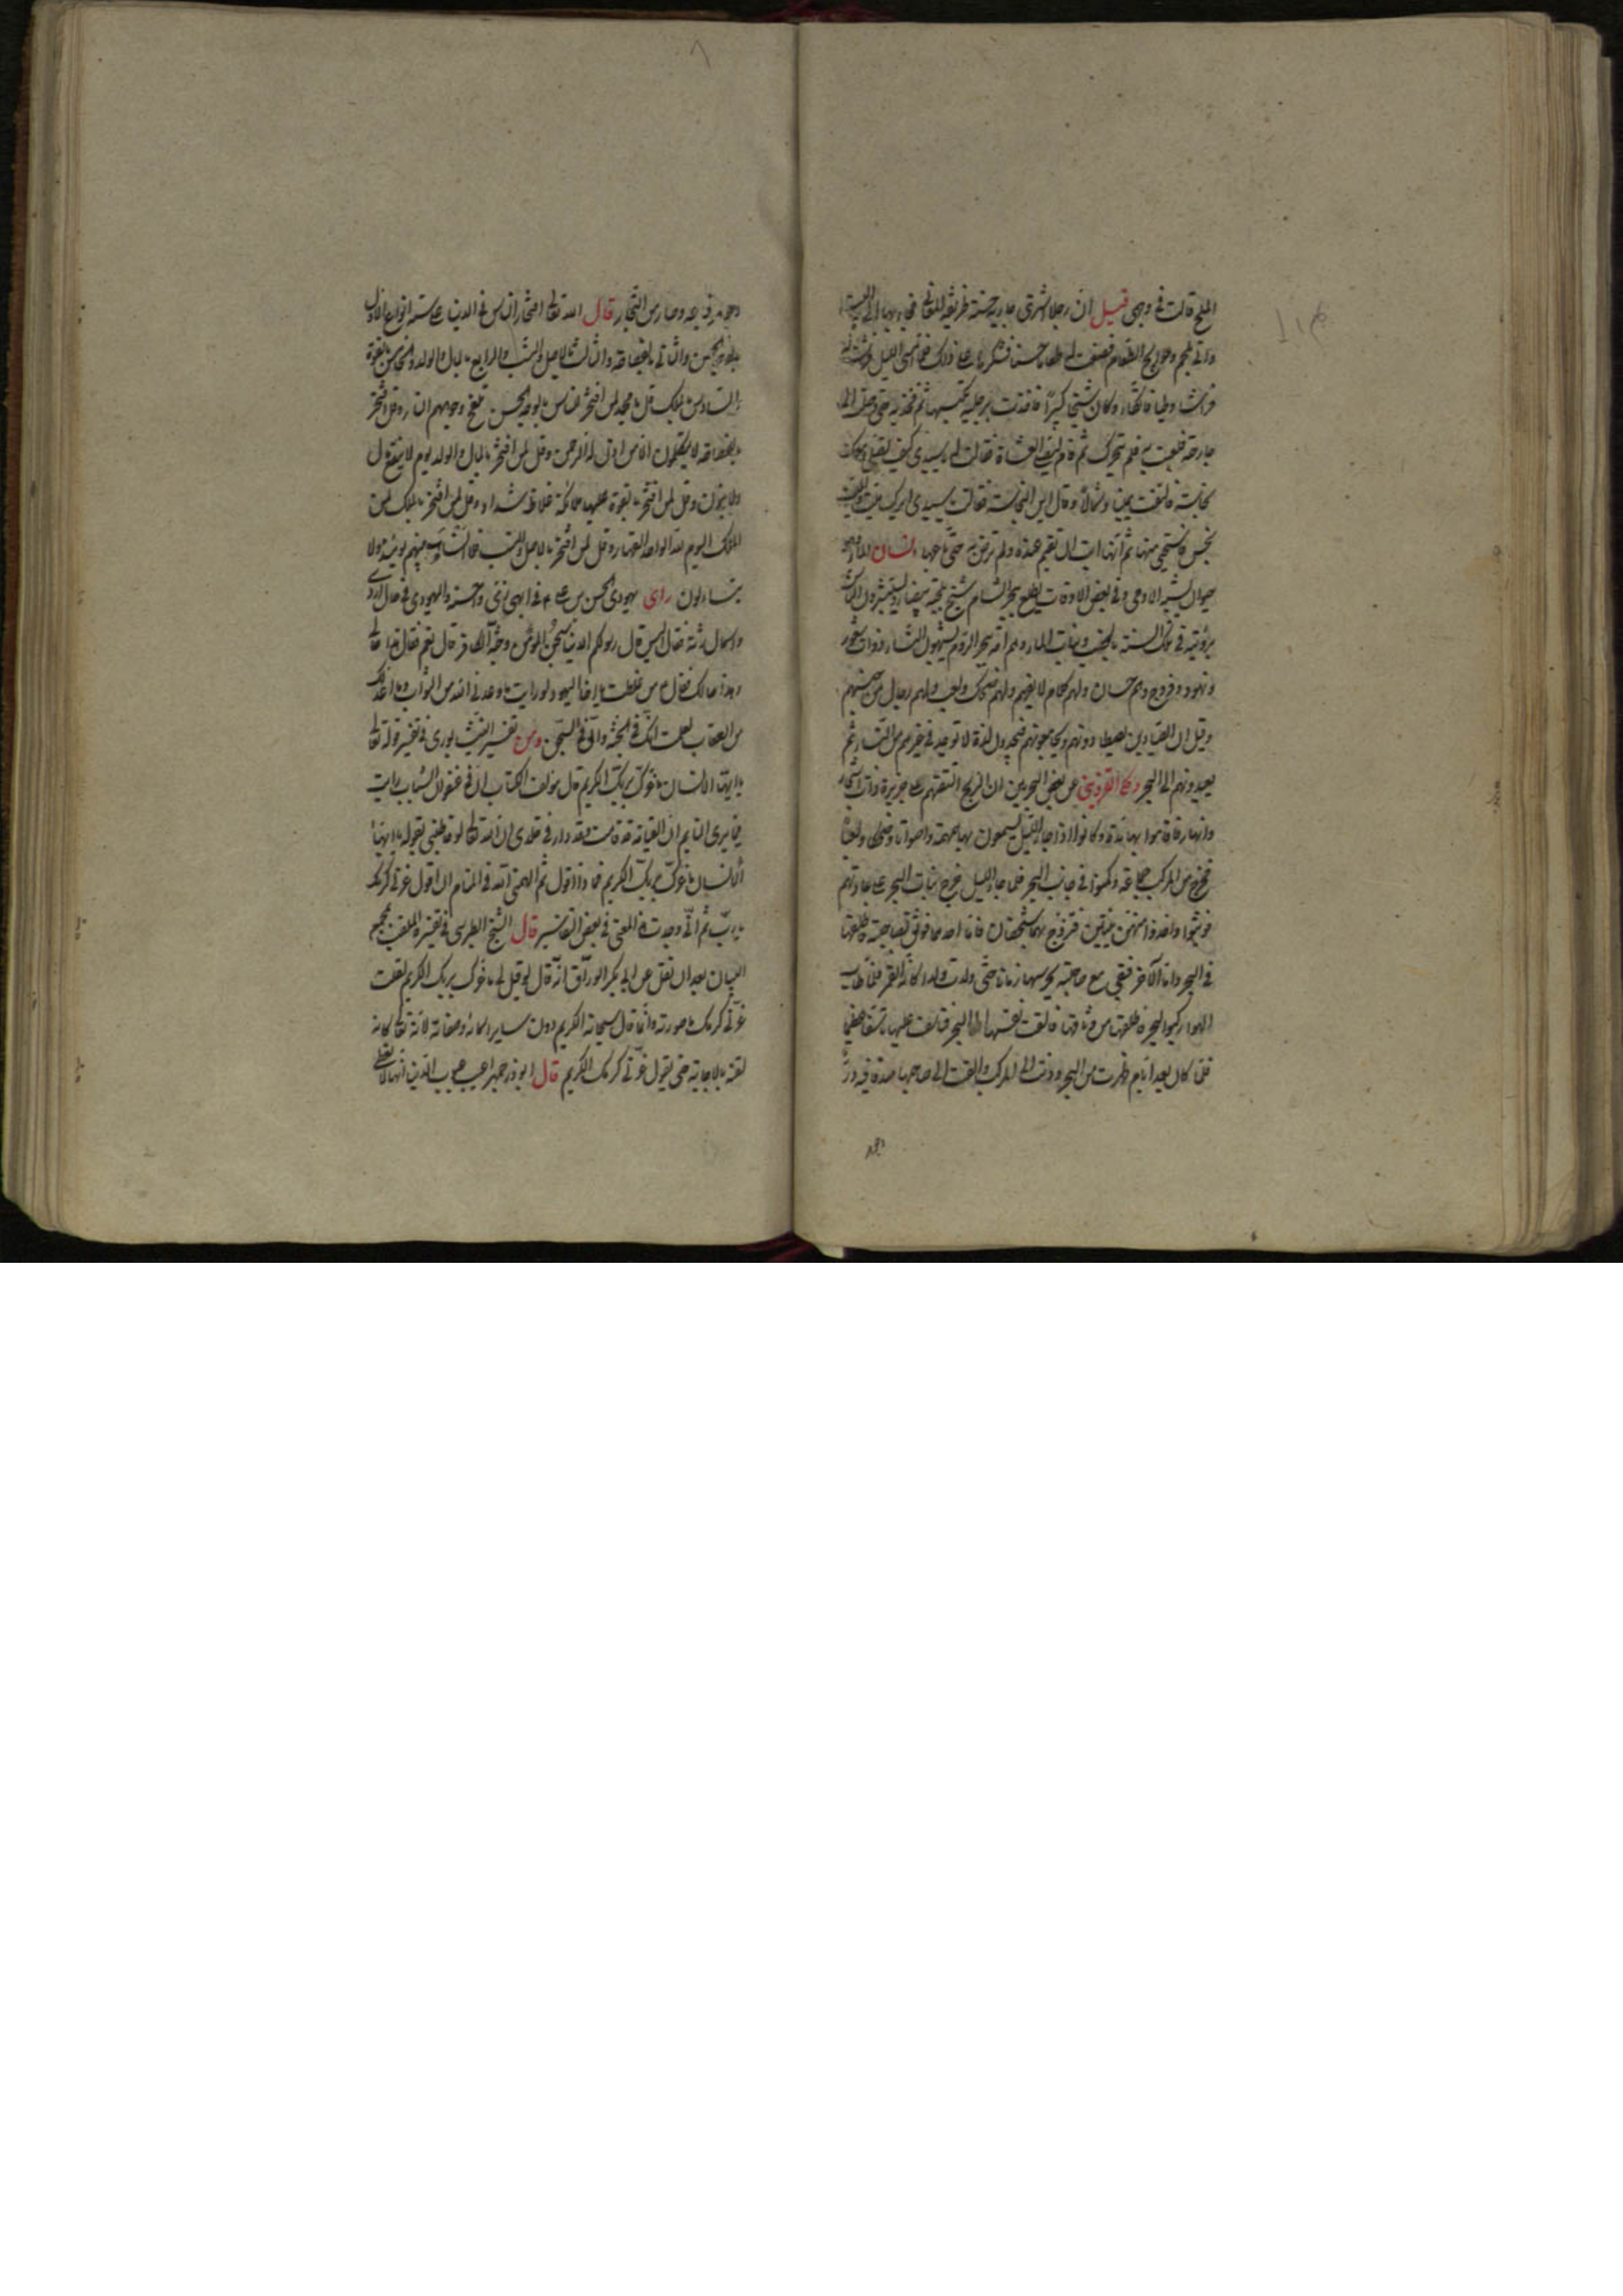 الملح قالت في وجهي قيل ان رجلا اشترى جارية حسنة ظريفة المعاني فجاء بها الى البيت
واتى بلحم وحوايج الطعام فصنعت له طعاما حسنا فشكرها على ذلك فلما امسى الليل فرشت له
فراشا وطيا وكان شيخا كبيرا فاخذت برجليه تكبسها ثم فخذيه حتى وصلت الى
جارحة فلعبت به فلم تتحرك ثم قام ليقضي الصلاة فقالت له يا سيدي كيف تصلي ومعك
نجاسة فالتفت يمينا وشمالا وقال اين النجاسة فقالت يا سيدي ايرك ميت والميت
نجس فاستحيى منها ثم انها ابت ان تقيم عنده ولم ترض به حتى باعها انسان الماء هو
حيوان يشبه الآدمي وفي بعض الاوقات يطلع ببحر الشام شيخ بلحية بيضاء ويستبشرون الناس
برؤيته في تلك السنة بالخصب وبنات الماء وهم امة ببحر الروم يشبهون النساء ذوات شعور
ونهود وفروج وهم حسان ولهم كلام لا يفهم ولهم ضحك ولعب ولهم رجال من جنسهم
وقيل ان الصيادين يصيطادونهم ويجامعونهم فيجدون لذة لا توجد في غيرهم من النساء ثم
يعيدونهم الى البحر وحكى القزويني عن بعض البحريين ان الريح القتهم على جزيرة ذات اشجار
وانهار فاقاموا بها مدة وكانوا اذا جاء الليل يسمعون بها همهمة واصواتا وضحكا ولعبا
فخرج من المركب جماعة وكمنوا في جانب البحر فلما جاء الليل خرج بنات البحر على عادتهم
فوثبوا واخذوا منهن ثنتين فتزوج بهما شخصان فاما احدهما فوثق بصاحبته فاطلقها
في البحر واما الآخر فبقي مع صاحبته يحرسها زمانا حتى ولدت ولدا كانه القمر فلما طاب
الهواء ركبوا البحر فاطلقها من وثاقها فالقت نفسها الى البحر فتأسف عليها تأسفا عظيما
فلما كان بعد ايام ظهرت من البحر ودنت الى المركب والقت الى صاحبها صدفا فيه در
وجوهر فباعه وصار من التجار قال الله تعالى افتخار الناس في الدنيا على ستة انواع الاول
بالوجه الحسن والثاني بالفصاحة والثالث بالاصل والنسب والرابع بالمال والولد والخامس بالقوة
والسادس بالملك قل يا محمد لمن افتخر للناس بالوجه الحسن تلفح وجوههم النار وقل لمن افتخر
بالفصاحة لا يتكلمون الا من اذن له الرحمن وقل لمن افتخر بالمال والولد يوم لا ينفع مال
ولا بنون وقل لمن افتخر بالقوة عليها ملائكة غلاظ شداد وقل لمن افتخر بالملك لمن
الملك اليوم لله الواحد القهار وقل لمن افتخر بالاصل والنسب فلا انساب بينهم يومئذ ولا
يتساءلون رأى يهودي الحسن بن علي ع في ابهى زي واحسنه واليهودي في حال رديء
واسمال رثة فقال اليس قال رسولكم الدنيا سجن المؤمن وجنة الكافر قال نعم فقال هذا حالي
وهذا حالك فقال ع غلطت يا اخا اليهود لو رايت ما وعدني الله من الثواب وما اعد لك
من العقاب لعلمت انك في الجنة واني في السجن ومن تفسير النيشابوري في تفسير قوله تعالى
يا ايها الانسان ما غرك بربك الكريم قال مؤلف الكتاب اني في عنفوان الشباب رايت
فيما يرى النايم ان القيامة قد قامت وقد دار في خلدي ان الله تعالى لو خاطبني بقوله يا ايها
الانسان ما غرك بربك الكريم فماذا اقول ثم الهمني الله في المنام ان اقول غرني كرمك
يا رب ثم اني وجدت هذا المعنى في بعض التفاسير قال الشيخ الطبرسي في تفسيره الملقب بمجمع
البيان بعد ان نقل عن ابي بكر الوراق انه قال لو قيل لي ما غرك بربك الكريم لقلت
غرني كرمك ما صورته وانما قال سبحانه الكريم دون ساير اسمائه وصفاته لانه تعالى كانه
لقنه بالاجابة حتى يقول غرني كرمك الكريم قال ابوذرجمهر اعيب عيوب الدنيا انها لا تعطي